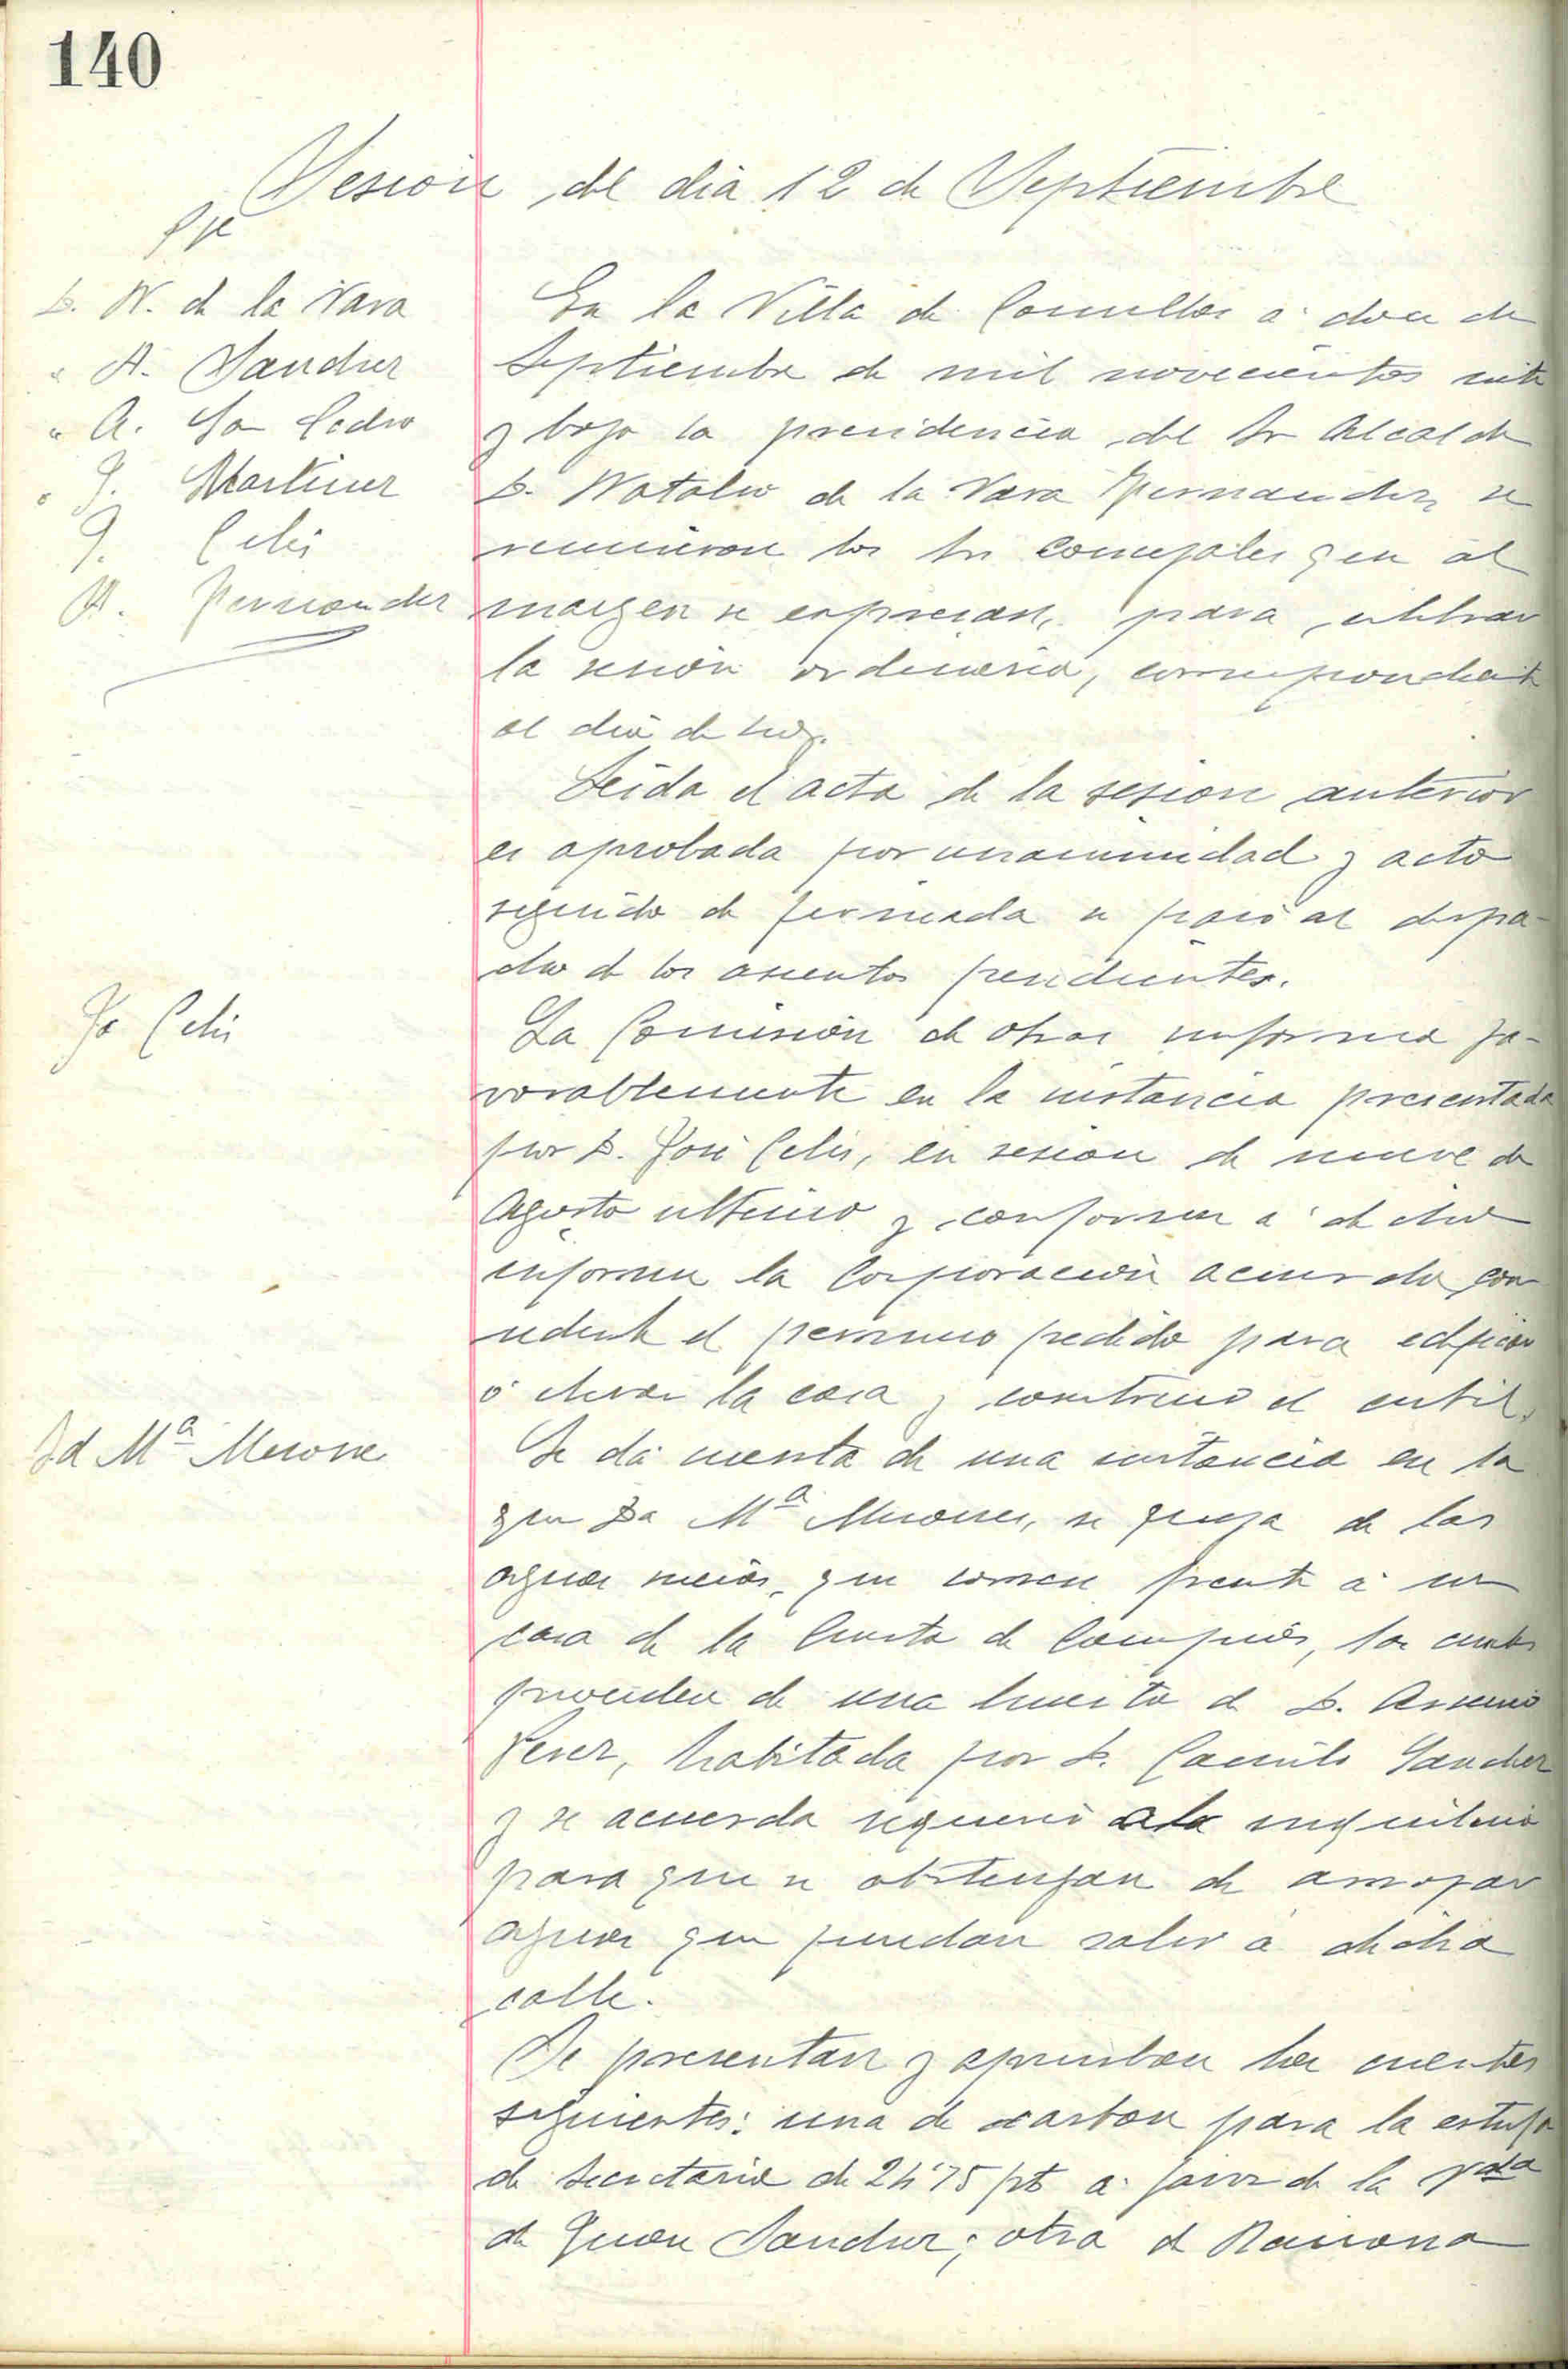 140
Sesion del dia 12 de Septiembre
D. N. de la Vara
" A. Sanchez
" A. Sn Pedro
" J. Martinez
J. Celis
A. Fernandez
En la Villa de Comillas a doce de
Septiembre de mil novecientos siete
y bajo la presidencia del Sr Alcalde
D. Natalio de la Vara Fernandez, se
reunieron los Srs Concejales que al
margen se expresan, para celebrar
la sesión ordinaria, correspondiente
al dia de hoy.
Leida el acta de la sesion anterior
es aprobada por unanimidad y acto
seguido de firmada se pasó al despa-
cho de los asuntos pendientes.
Jo Celis
La Comisión de obras informa fa-
vorablemente en la instancia presentada
por D. José Celis, en sesion de nueve de
Agosto ultimo y conforme a dicho
informe la Corporación acuerda con
cederle el permiso pedido para edificar
ó elevar la casa y construir el cubil.
Id Mª Merone
Se dá cuenta de una instancia en la
que Da Mª Merones, se queja de las
aguas sucias, que corren frente a su
casa de la Cuesta de Campios, las cuales
proceden de una huerta de D. Arsenio
Perez, habitada por D. Camilo Sanchez
y se acuerda requerir a la inquilina
para que se abstengan de arrojar
aguas que puedan salir a dicha
calle.
Se presentan y aprueban las cuentas
siguientes: una de carbon para la estufa
de Secretaria de 24'75 pts a favor de la vda
de Juan Sanchez; otra de Ramona